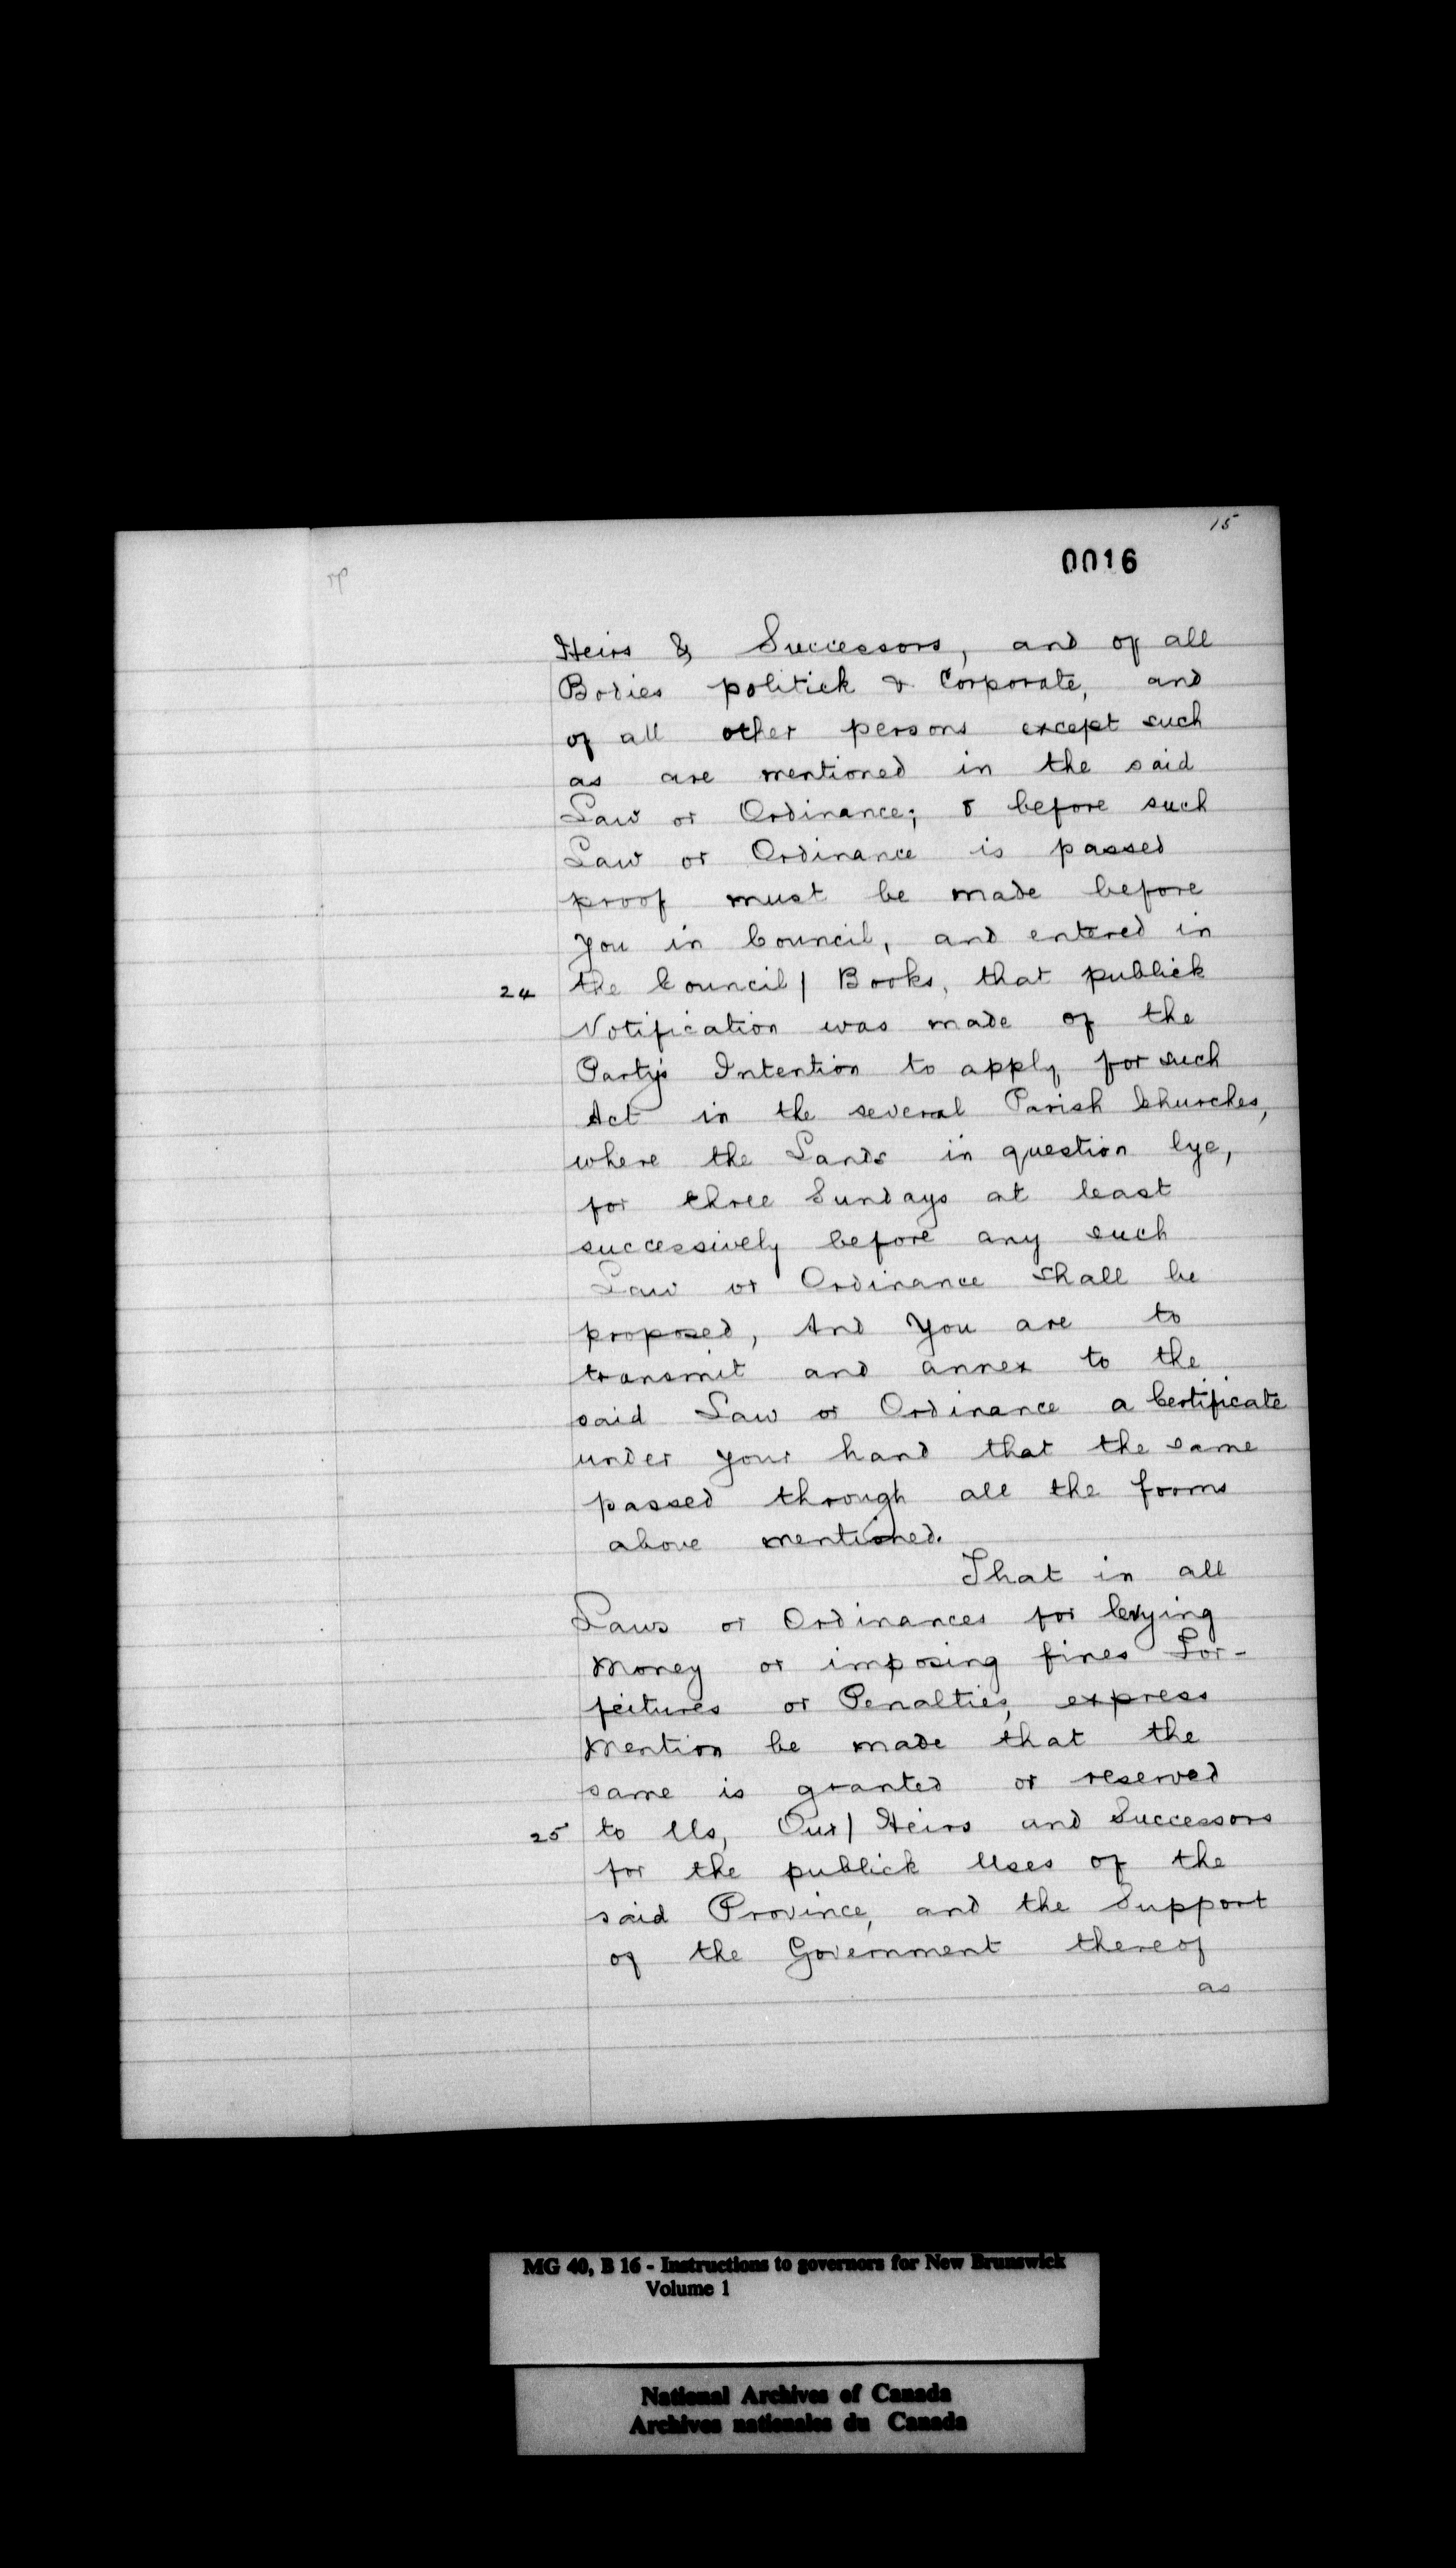 15
0016
Heirs & Successors, and of all
Bodies politick & Corporate, and
of all other persons except such
as are mentioned in the said
Law or Ordinance; & before such
Law or Ordinance is passed
proof must be made before
you in Council, and entered in
24 the Council/ Books, that publick
Notification was made of the
Party's Intention to apply for such
Act in the several Parish Churches,
where the Lands in question lye,
for three Sundays at least
successively before any such
Law or Ordinance shall be
proposed, And You are to
transmit and annex to the
said Law or Ordinance a Certificate
under your hand that the same
passed through all the forms
above mentioned.
That in all
Laws or Ordinances for levying
Money or imposing fines For-
feitures or Penalties, express
Mention be made that the
same is granted or reserved
25 to Us, Our/ Heirs and Successors
for the publick Uses of the
said Province, and the Support
of the Government thereof
as
MG 40, B 16 - Instructions to governors for New Brunswick
Volume 1
National Archives of Canada
Archives nationales du Canada